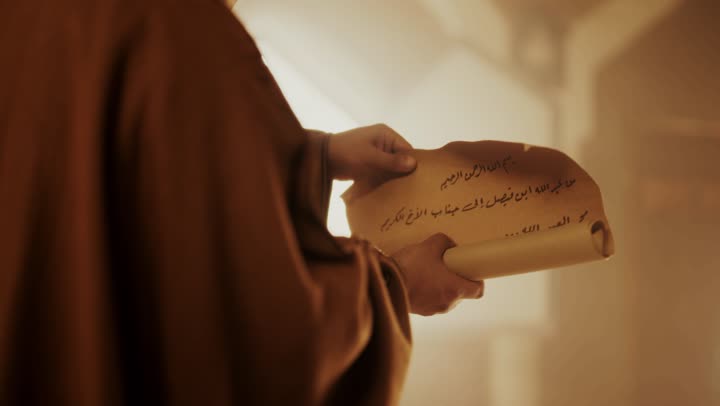 بسم الله الرحمن الرحيم
من عبد الله ابن فيصل إلى جناب الأخ الكريم
الله ...